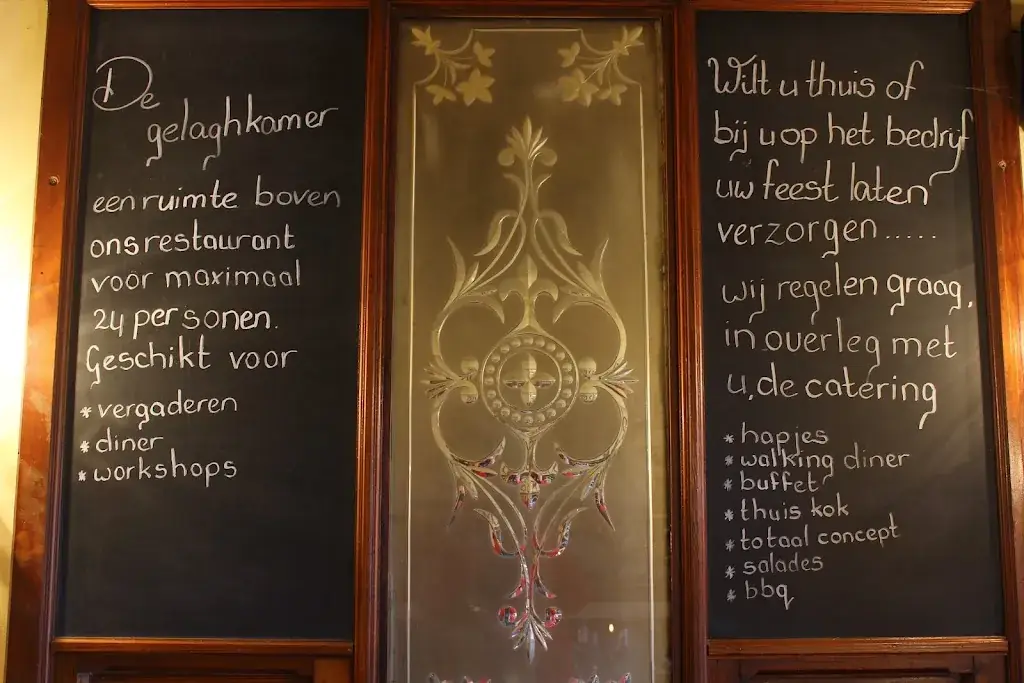 De
gelaghkamer
een ruimte boven
ons restaurant
voor maximaal
24 personen.
Geschikt voor
* vergaderen
* diner
* workshops
Wilt u thuis of
bij u op het bedrijf
uw feest laten
verzorgen.....
wij regelen graag,
in overleg met
u, de catering
* hapjes
* walking diner
* buffet
* thuis kok
* totaal concept
* salades
* bbq